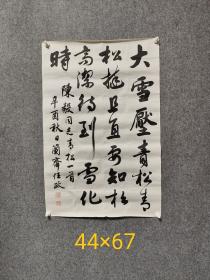 大雪壓青松青
松挺且直要知松
高潔待到雪化
時
陳毅同志青松一首
辛酉秋日蘭齋任政
44×67